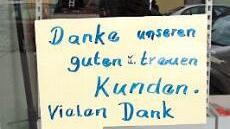 Danke unseren
guten u. treuen
Kunden.
Vielen Dank